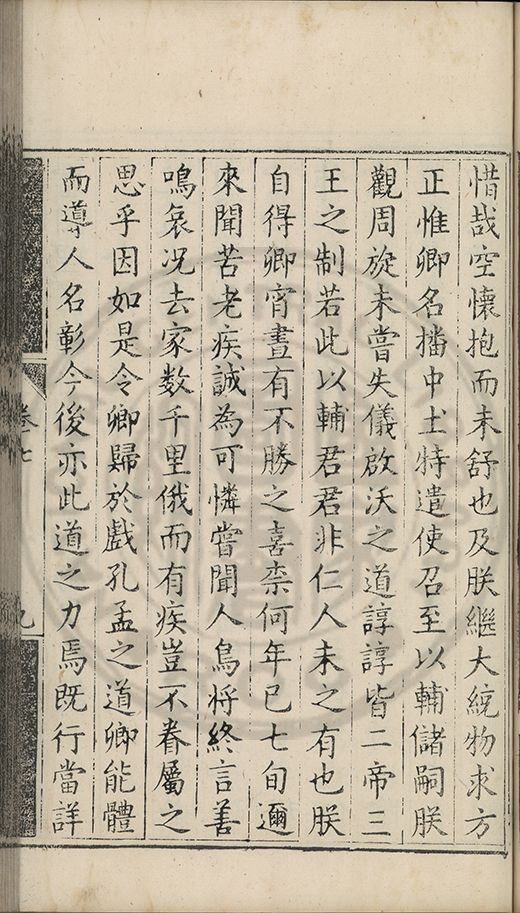 惜哉空懷抱而未舒也及朕繼大統物求方
正惟卿名播中土特遣使召至以輔儲嗣朕
觀周旋未嘗失儀啟沃之道諄諄皆二帝三
王之制若此以輔君君非仁人未之有也朕
自得卿宵晝有不勝之喜柰何年已七旬邇
來聞苦老疾誠為可憐嘗聞人鳥將終言善
鳴哀况去家数千里俄而有疾豈不眷屬之
思乎因如是令卿歸於戲孔孟之道卿能體
而導人名彰今後亦此道之力焉既行當詳
卷七
九